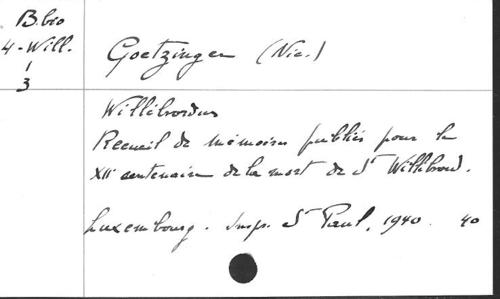 B.bio
4-Will.
1
3
Goetzinger (Nic.)
Willibrordus
Recueil de mémoires publiés pour le
XIIe centenaire de la mort de St Willibrord.
Luxembourg. Imp. St Paul, 1940. 40